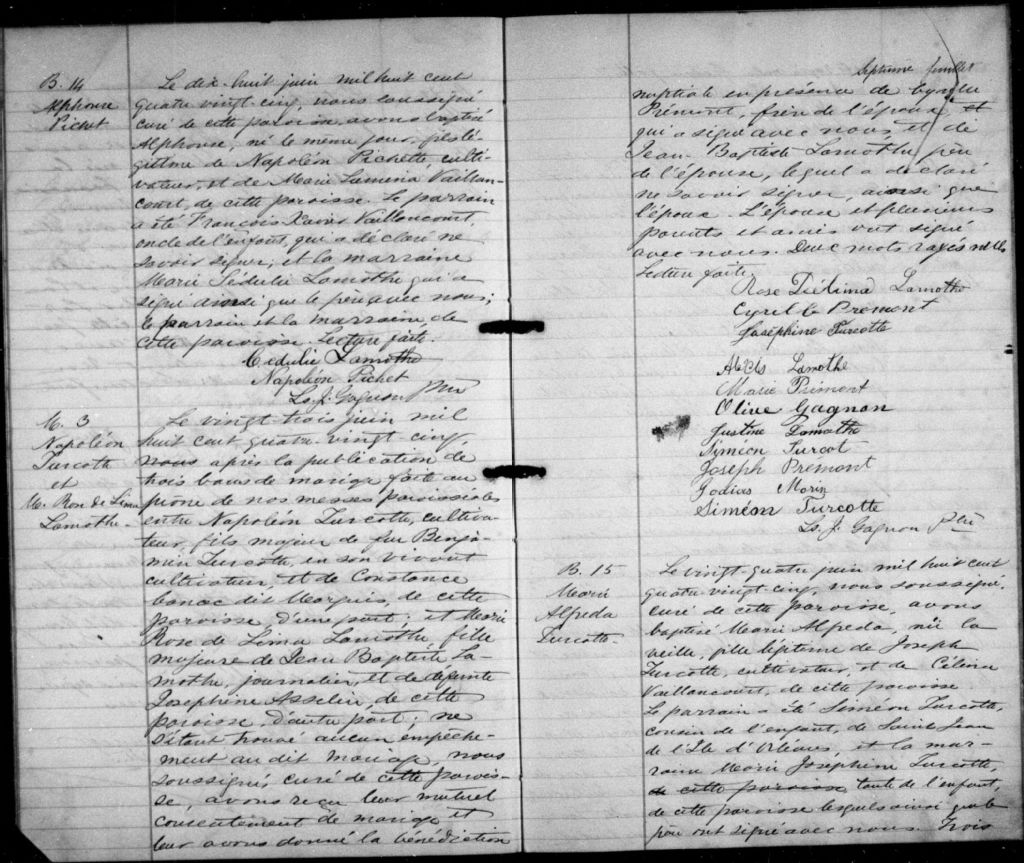 B. 14
Alphonse
Pichet
Le dix-huit juin mil huit cent
quatre vingt cinq, nous soussigné
curé de cette paroisse, avons baptisé
Alphonse, né le même jour, fils lé-
gitime de Napoléon Pichette culti-
vateur, et de Marie Lumena Vaillan-
court, de cette paroisse. Le parrain
a été François-Xavier Vaillancourt,
oncle de l'enfant, qui a déclaré ne
savoir signer, et la marraine
Marie Sédulie Lamothe qui a
signé ainsi que le père avec nous;
le parrain et la marraine de
cette paroisse. Lecture faite.
Cedulie Lamothe
Napoléon Pichet
Ls. J. Gagnon Ptre
M. 3
Napoléon
Turcotte
et
M. Rose de Lima
Lamothe.
Le vingt-trois juin mil
huit cent quatre-vingt-cinq,
nous après la publication de
trois bans de mariage faite au
prône de nos messes paroissiales
entre Napoléon Turcotte, cultiva-
teur, fils majeur de feu Benja-
min Turcotte, en son vivant
cultivateur, et de Constance
Canac dit Marquis, de cette
paroisse d'une part; et Marie
Rose de Lima Lamothe fille
majeure de Jean Baptiste La-
mothe, journalier, et de défunte
Josephine Asselin, de cette
paroisse, d'autre part; ne
s'étant trouvé aucun empêche-
ment au dit mariage, nous
soussigné, curé de cette parois-
se, avons reçu leur mutuel
consentement de mariage et
leur avons donné la bénédiction
Septième feuillet
nuptiale en présence de
Prémont, frère de l'époux, et
qui a signé avec nous, et de
Jean-Baptiste Lamothe père
de l'épouse, lequel a déclaré
ne savoir signer, ainsi que
l'époux. L'épouse et plusieurs
parents et amis ont signé
avec nous. Deux mots rayés nuls
Lecture faite.
Rose Délima Lamothe
Cyrille Premont
Josephine Turcotte
Lamothe
Marie Prémont
Olive Gagnon
Justine Lamothe
Siméon Turcot
Joseph Premont
Godias Morin
Siméon Turcotte
Ls. J. Gagnon Ptre
B. 15
Marie
Alfreda
Turcotte.
Le vingt-quatre juin mil huit cent
quatre vingt cinq, nous soussigné,
curé de cette paroisse, avons
baptisé Marie Alfreda, née la
veille, fille légitime de Joseph
Turcotte, cultivateur, et de Célina
Vaillancourt, de cette paroisse.
Le parrain a été Siméon Turcotte,
cousin de l'enfant, de Saint-Jean
de l'Ile d'Orléans, et la mar-
raine Marie Josephine Turcotte,
de cette paroisse tante de l'enfant,
de cette paroisse lesquels ainsi que le
père ont signé avec nous. Trois